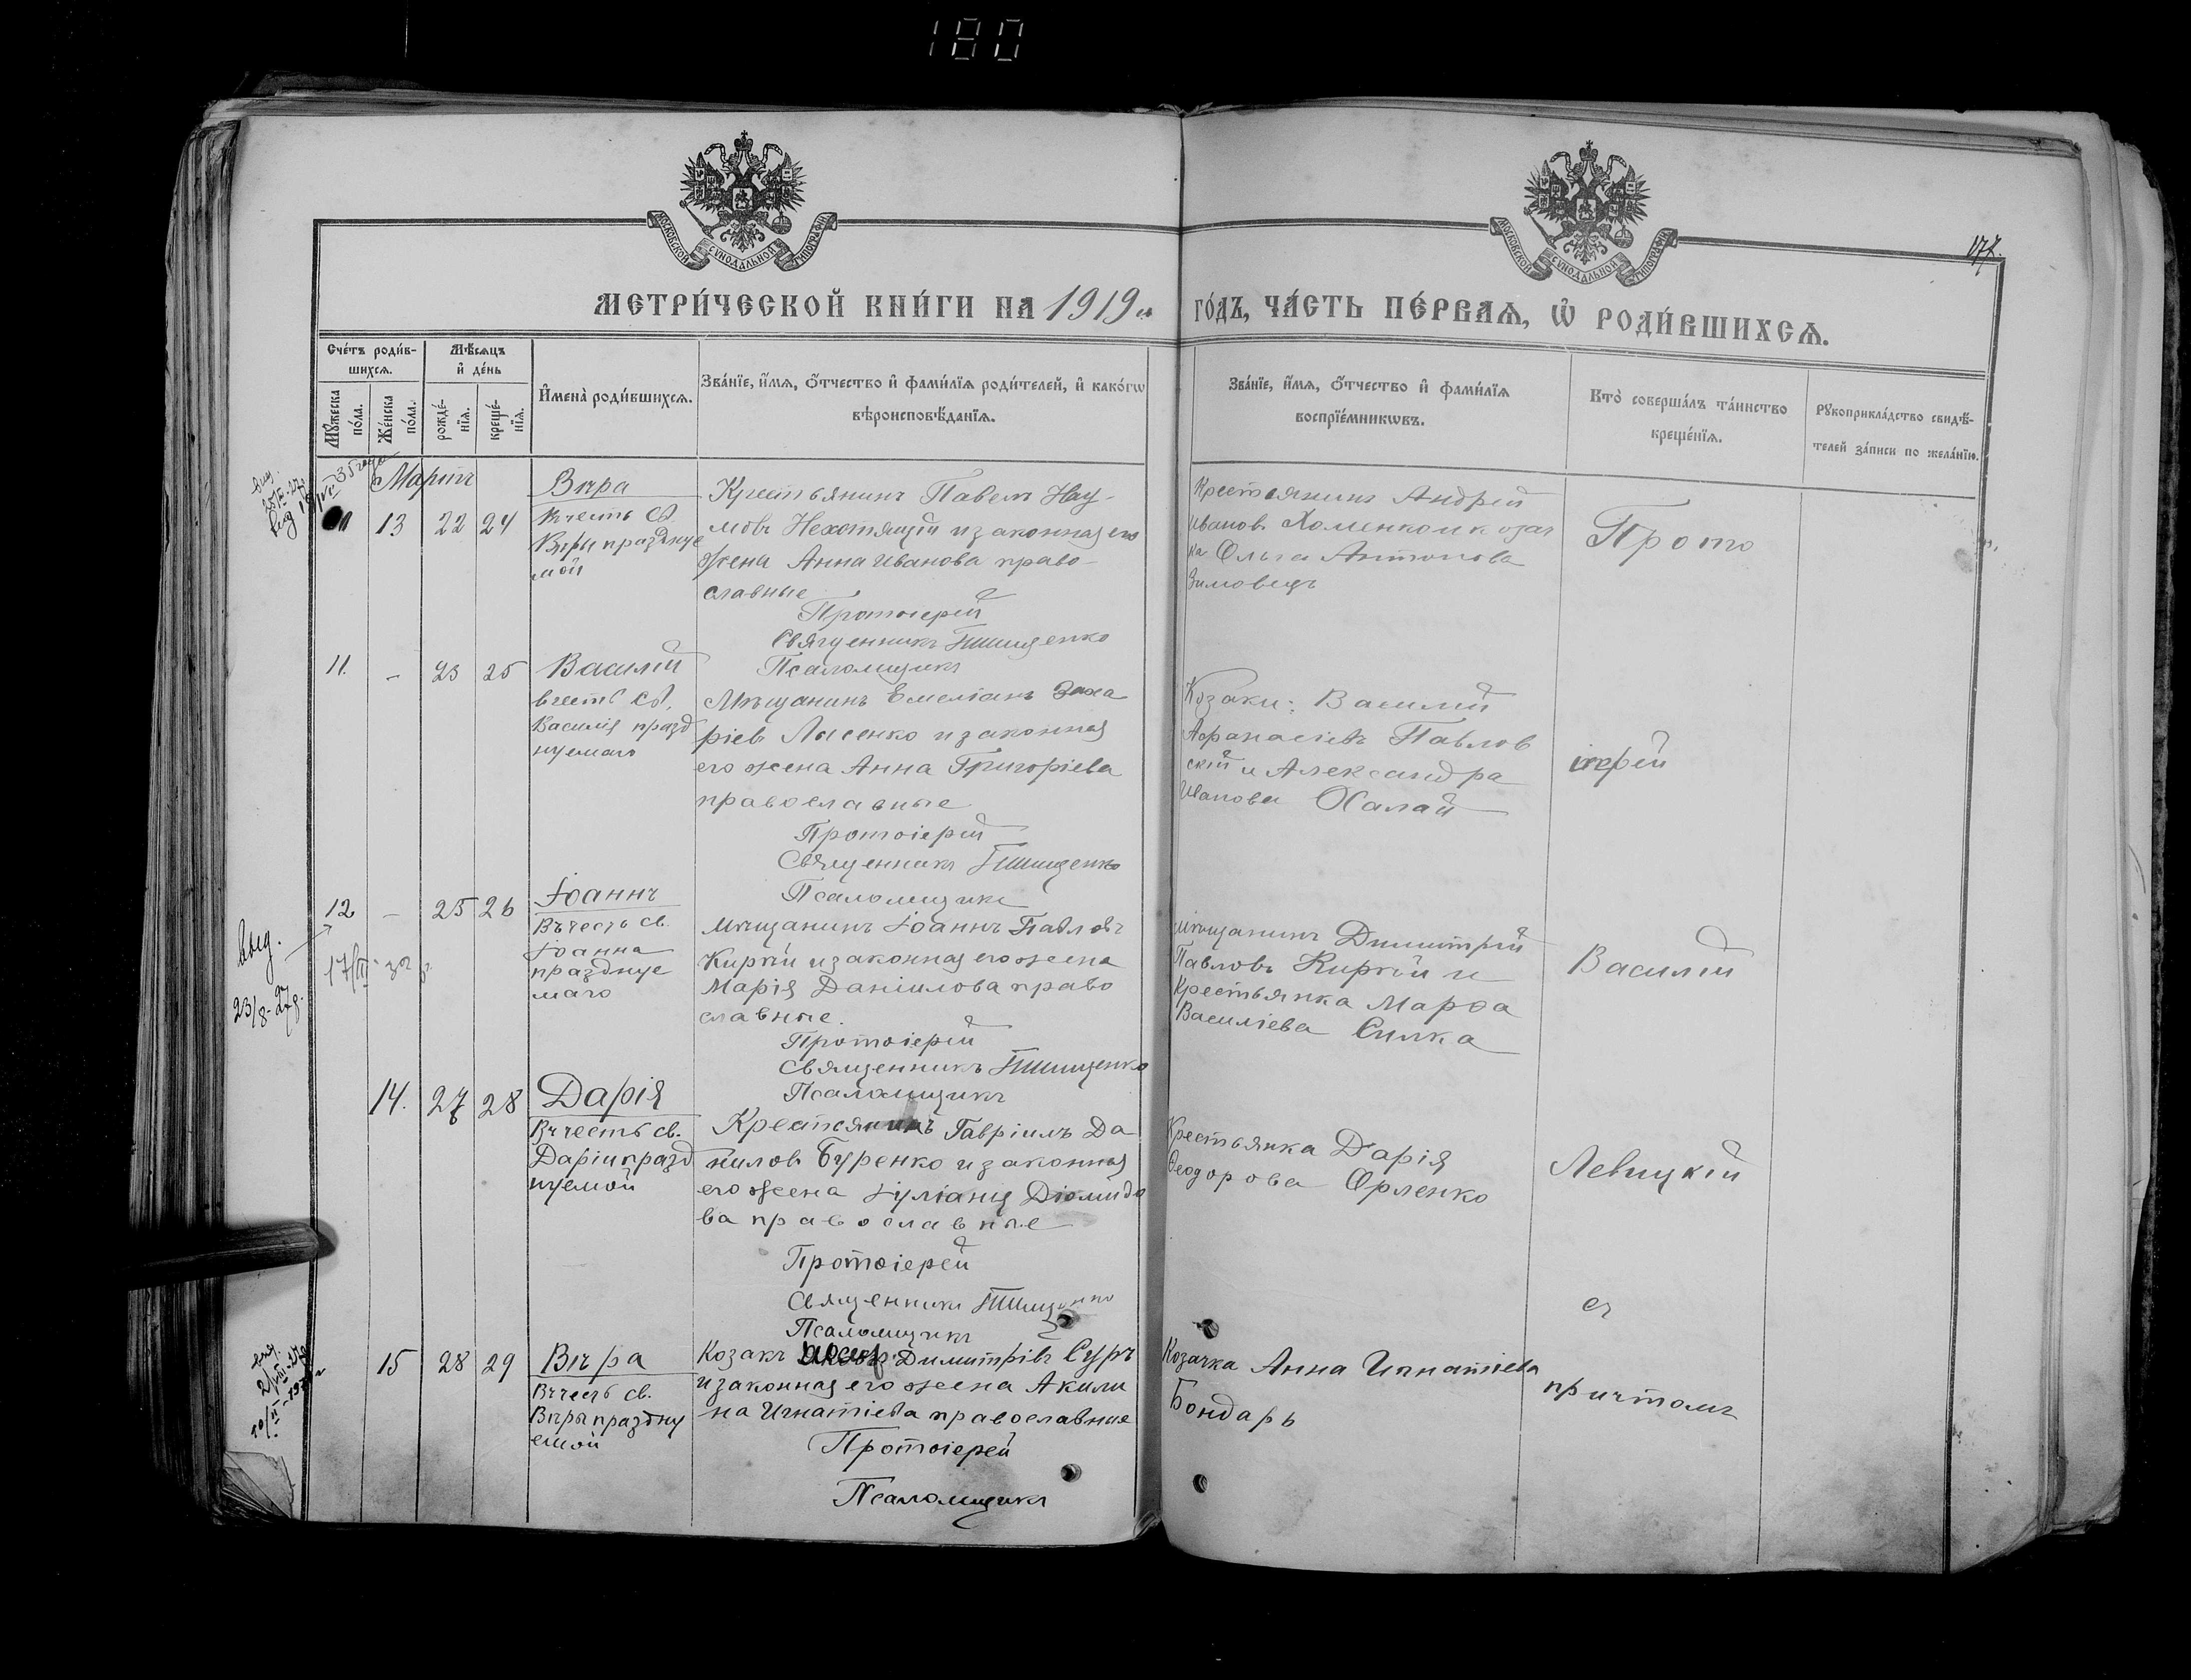 180
МОСКОВСКОЙ СѴНОДАЛЬНОЙ ТИПОГРАФІИ
МОСКОВСКОЙ СѴНОДАЛЬНОЙ ТИПОГРАФІИ
177.
МЕТРИ́ЧЕСКОЙ КНИ́ГИ НА 1919й
ГО́ДЪ, ЧА́СТЬ ПЕ́РВАѦ, Ѡ҆ РОДИ́ВШИХСѦ.
Сче́тъ роди́в-
шихсѧ.
Мѣ́сѧцъ
и҆ де́нь
Мꙋ́жеска по́ла.
Же́нска по́ла.
рожде́-
нїѧ.
креще́-
нїѧ.
И҆мена̀ роди́вшихсѧ.
Зва́нїе, и҆́мѧ, ѻ҆́тчество и҆ фами́лїѧ роди́телей, и҆ како́гѡ
вѣроисповѣ́данїѧ.
Зва́нїе, и҆́мѧ, ѻ҆́тчество и҆ фами́лїѧ
воспрїе́мникѡвъ.
Кто̀ соверша́лъ та́инство
креще́нїѧ.
Рꙋкоприкла́дство свидѣ́-
телей за́писи по жела́нїю.
Мартъ
13 22 24
Вѣра
Въ честь св.
Вѣры празднуе
мой
Крестьянинъ Павелъ Нау-
мовъ Нехотящій и законная его
жена Анна Иванова право-
славные
Протоіерей
Священникъ Тимщенко
Псаломщикъ
Крестьянинъ Андрей
Ивановъ Хоменко и козач
ка Ольга Антонова
Зимовецъ
Прото
11. - 23 25
Василій
в честь св.
Василія празд
нуемаго
Мѣщанинъ Емеліанъ Заха
ріевъ Лысенко и законная
его жена Анна Григоріева
православные
Протоіерей
Священникъ Тимщенко
Псаломщикъ
Козаки: Василій
Афанасіевъ Павлов
скій и Александра
Иванова Халай
іерей
12 - 25 26
Іоаннъ
Въ честь св.
Іоанна
празднуе
маго
Мѣщанинъ Іоаннъ Павловъ
Киркій и законная его жена
Марія Даніилова право
славные.
Протоіерей
Священникъ Тимщенко
Псаломщикъ
Мѣщанинъ Димитрій
Павловъ Киркій и
Крестьянка Марѳа
Василіева Силка
Василій
выд.
23/8-27г.
14. 27 28
Дарія
Въ честь св.
Даріи празд
нуемой
Крестьянинъ Гавріилъ Да
ниловъ Буренко и законная
его жена Іуліанія Діомидо
ва православные
Протоіерей
Священникъ Тимщенко
Псаломщикъ
Крестьянка Дарія
Ѳеодорова Орленко
Левицкій
съ
15 28 29
Вѣра
Въ честь св.
Вѣры праздну
емой
Козакъ Димитріевъ Суръ
и законная его жена Акили
на Игнатіева православные
Протоіерей
Псаломщикъ
Козачка Анна Игнатіева
Бондарь
причтомъ